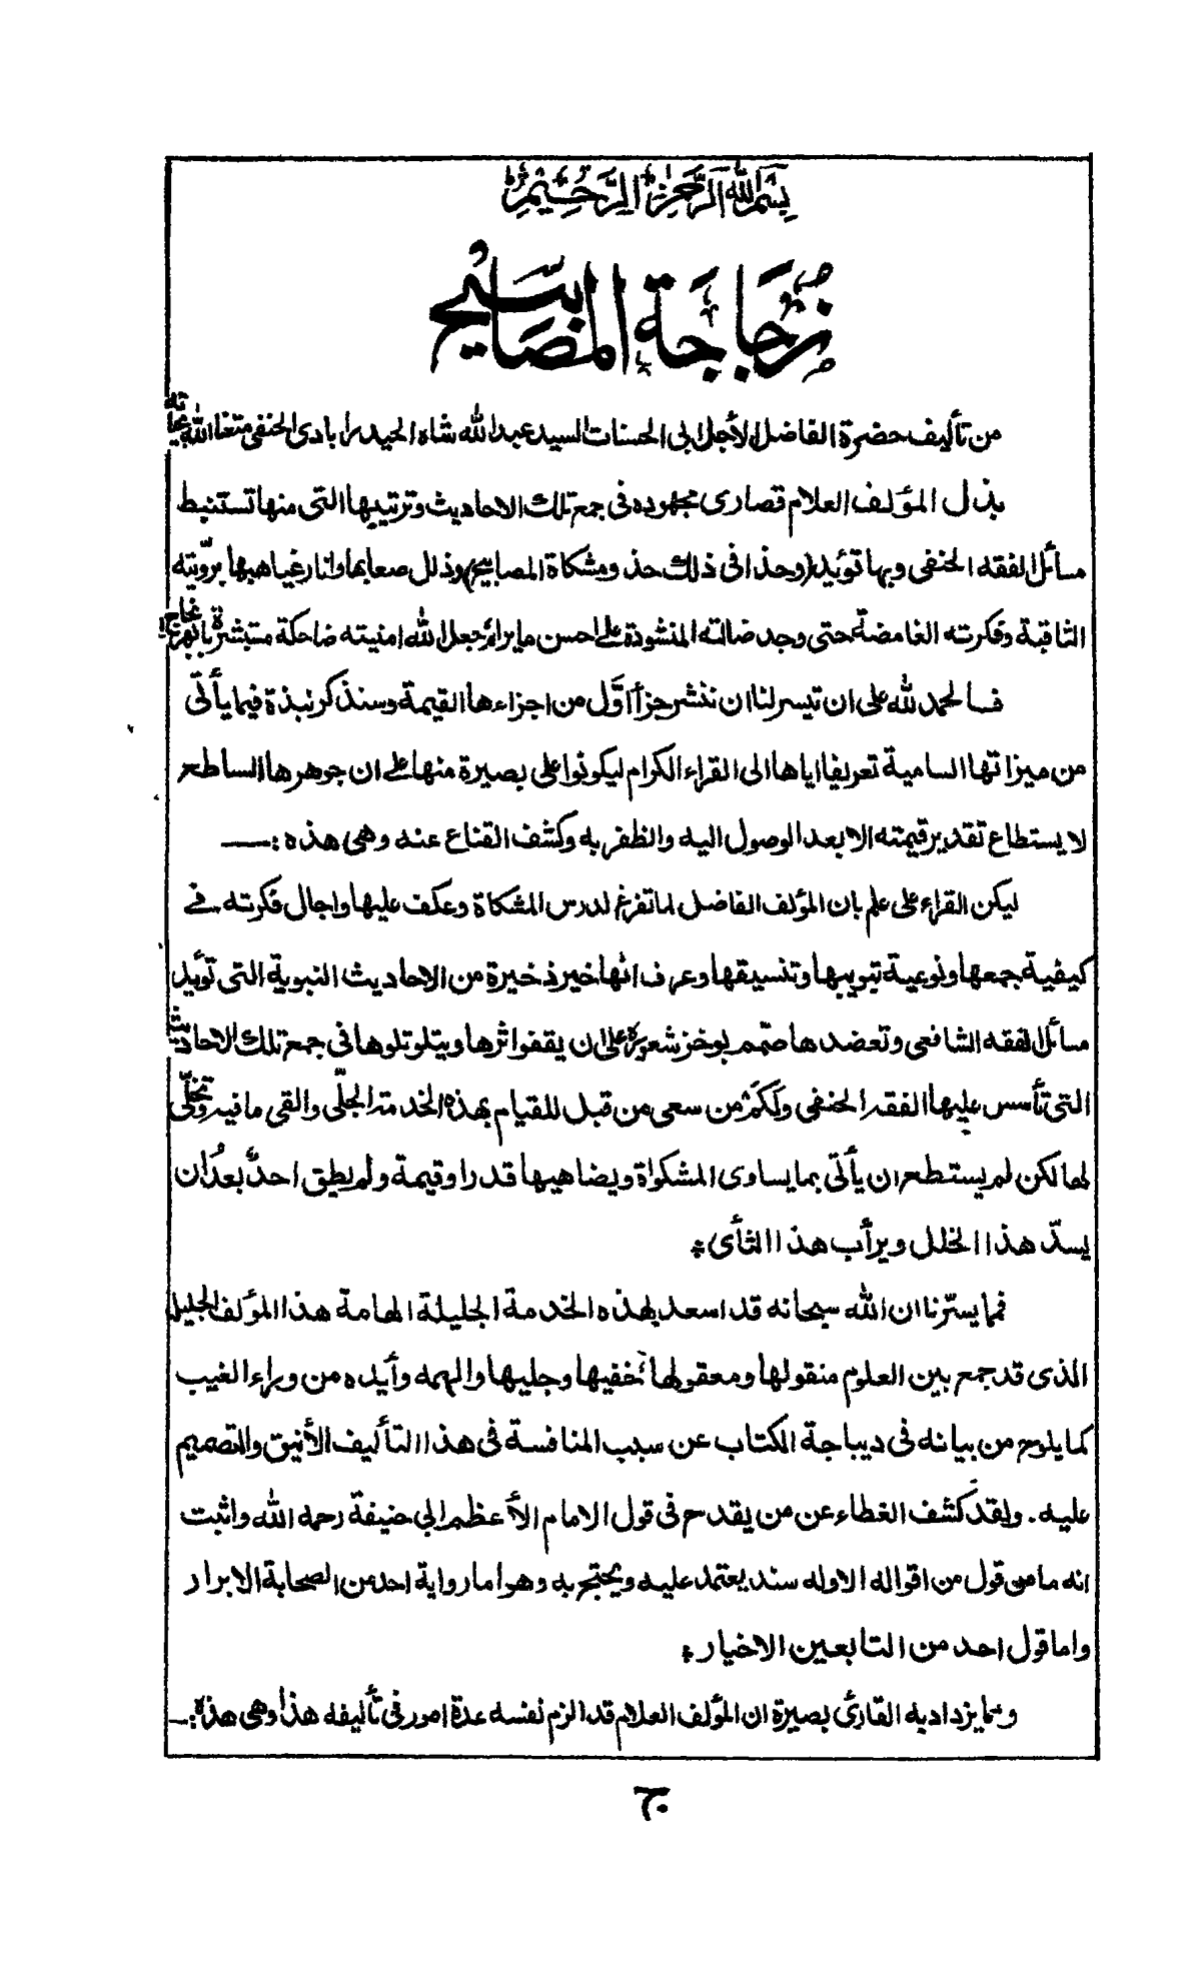 بِسْمِ اللهِ الرَّحْمٰنِ الرَّحِيْمِ
زُجَاجَة المَصَابِيْح
من تأليف حضرة الفاضل الأجل ابى الحسنات السيد عبد الله شاه الحيدرابادى الحنفى متعنا الله بحياته
بذل المؤلف العلام قصارى مجهوده فى جمع تلك الاحاديث وترتيبها التى منها تستنبط
مسائل الفقه الحنفى وبها تؤيد (وحذا فى ذلك حذو مشكاة المصابيح) وذلل صعابها وانار غياهبها بروّيته
الثاقبة وفكرته الغامضة حتى وجد ضالته المنشودة على احسن ما يرام جعل الله امنيته ضاحكة مستبشرة
فالحمد لله على ان تيسر لنا ان ننشر جزأ اوّل من اجزاءها القيمة وسنذكر نبذة فيما يأتى
من ميزاتها السامية تعريفا اياها الى القراء الكرام ليكونوا على بصيرة منها على ان جوهرها الساطع
لا يستطاع تقدير قيمته الا بعد الوصول اليه والظفر به وكشف القناع عنه وهى هذه :—
ليكن القراء على علم بان المؤلف الفاضل لما تفرغ لدرس المشكاة وعكف عليها واجال فكرته فى
كيفية جمعها ونوعية تبويبها وتنسيقها وعرف انها خير ذخيرة من الاحاديث النبوية التى تؤيد
مسائل الفقه الشافعى وتعضدها صمّم بوخز شعوره على ان يقفو اثرها ويتلو تلوها فى جمع تلك الاحاديث
التى تأسس عليها الفقه الحنفى ولكم من سعى من قبل للقيام بهذه الخدمة الجلّى والقى ما فيه وتخلّى
لها لكن لم يستطع ان يأتى بما يساوى المشكواة ويضاهيها قدرا وقيمة ولم يطق احدٌ بعدُ ان
يسدّ هذا الخلل ويرأب هذا الثأى ؞
فما يسرّنا ان الله سبحانه قد اسعد بهذه الخدمة الجليلة الهامة هذا المؤلف الجليل
الذى قد جمع بين العلوم منقولها ومعقولها خفيها وجليها والهمه وأيده من وراء الغيب
كما يلوح من بيانه فى ديباجة الكتاب عن سبب المنافسة فى هذا التأليف الأنيق والتصميم
عليه . ولقد كشف الغطاء عن من يقدح فى قول الامام الأعظم ابى حنيفة رحمه الله واثبت
انه ما من قول من اقواله الا وله سند يعتمد عليه ويحتج به وهو اما رواية احد من الصحابة الابرار
واما قول احد من التابعين الاخيار ؞
ومما يزداد به القارئ بصيرة ان المؤلف العلام قد الزم نفسه عدة امور فى تأليفه هذا وهى هذه :—
ج